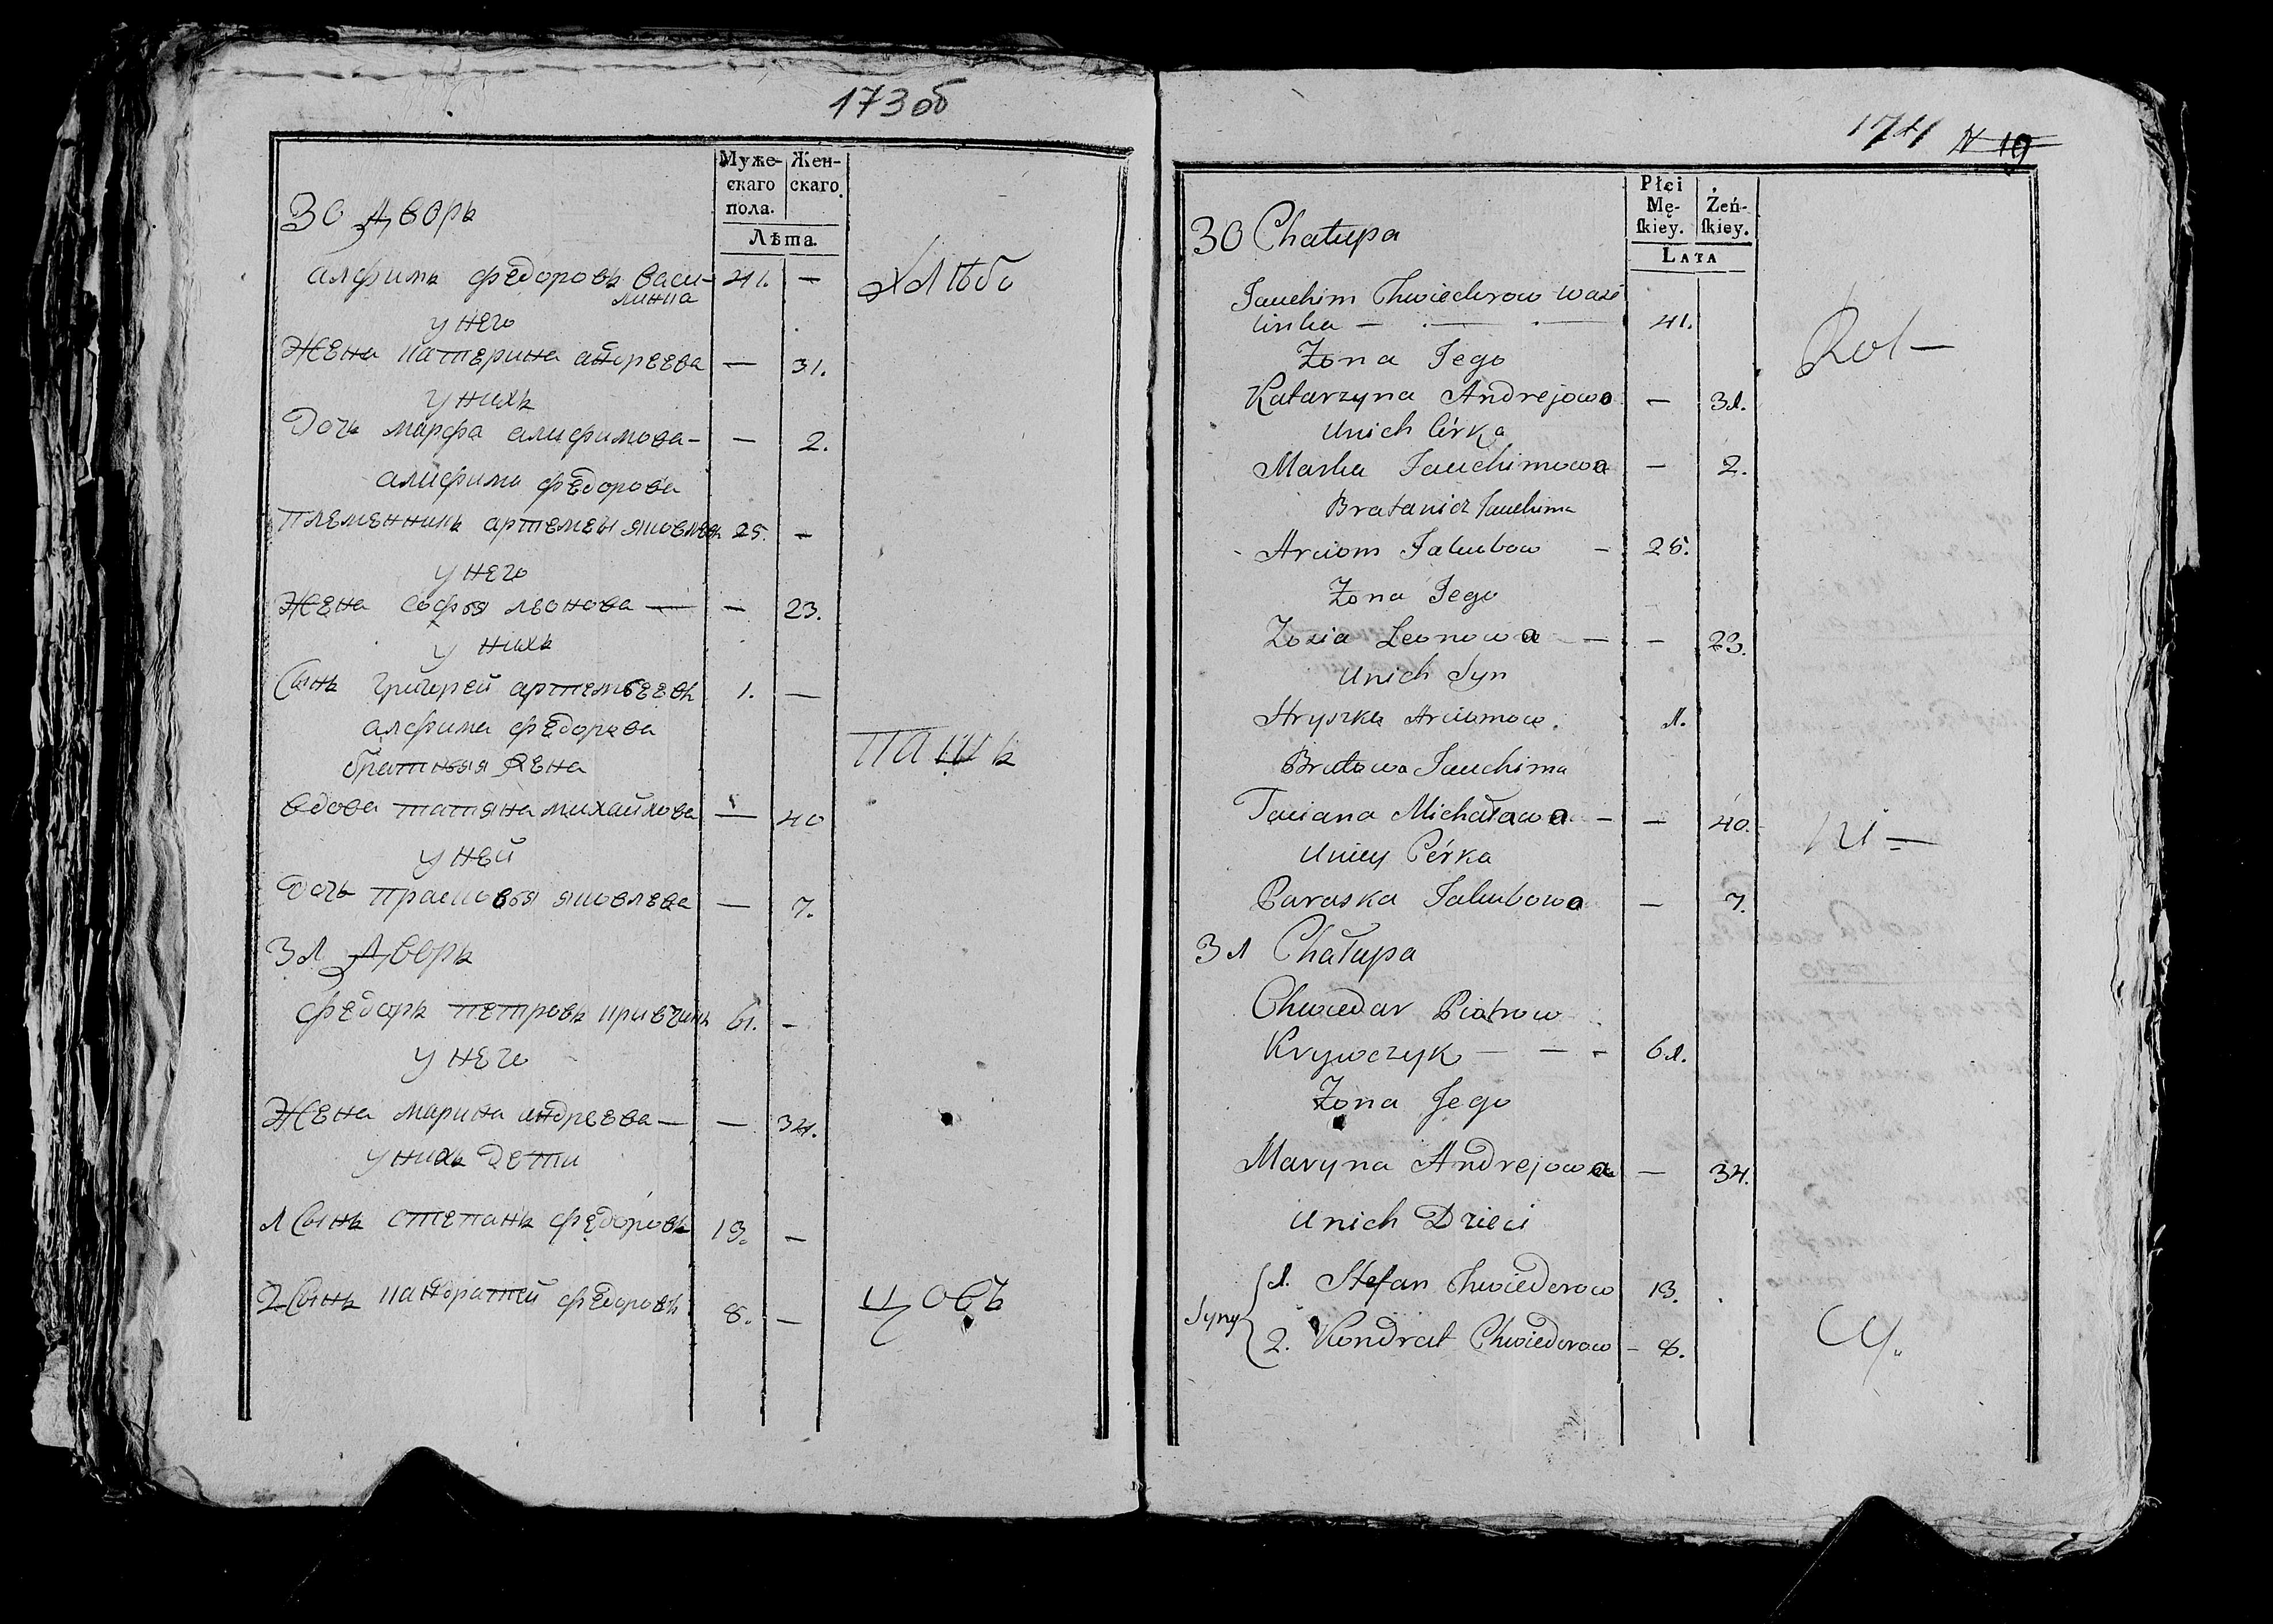 173 об
Муже-
скаго
пола.
Жен-
скаго.
Лѣта.
30 Дворъ
алфимъ федоровъ васи-
линка 41. —
у него
жена катерина андреева — 31.
у нихъ
дочь марфа алифимова — — 2.
алифима федорова
племенникъ артемей яковлевъ 25. —
у него
жена софья леонова — — 23.
у нихъ
сынъ григорей артемьеевъ 1. —
алфима федорова
братнья жена
вдова татяна михайлова — 40
у ней
дочь прасковья яковлева — 7.
31 Дворъ
федоръ петровъ кривчикъ 61. —
у него
жена марина андреева — — 34.
у нихъ дети
1 сынъ степанъ федоровъ 13. —
2 сынъ кандратей федоровъ 8. —
хлѣбо
пашъ
цовъ
174 N 19
Płci
Mę-
skiey.
Żeń-
skiey.
LATA
30 Chałupa
Jauchim Chwiedorow Wasi
linka — 41.
Żona Jego
Katarzyna Andrejowa — 31.
Unich Córka
Marka Jauchimowa — 2.
Bratanicz Jauchima
Arciom Jakubow — 25.
Żona Jego
Zosia Leonowa — — 23.
Unich Syn
Hryszka Arciomow. 1.
Bratowa Jauchima
Taciana Michałowa — — 40.
Uniey Córka
Paraska Jakubowa — 7.
31 Chałupa
Chwiedar Piotrow
Krywczyk — — — 61.
Żona Jego
Maryna Andrejowa — 34.
Unich Dzieci
Syny
1. Stefan Chwiedorow 13.
2. Kondrat Chwiedorow — 8.
Rol —
ni —
cy.